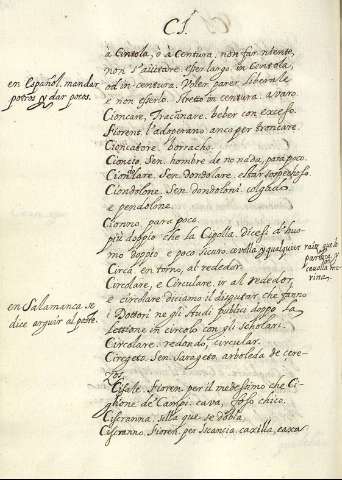 CI.
à Cintola, ò à centura, non far niente,
non s'aiutare. esser largo in Cintola,
od in centura. Voler parer liberale
e non esserlo. Stretto in centura. avaro.
en Español. mandar
potros y dar pocos.
Cioncare, Tracannare. beber con excesso.
Fiorent. l'adoperano anco per troncare.
Cioncatore. borracho.
Cioncio. Sen. hombre de no nada, para poco.
Ciondolare. Sen. Dondolare. estar
Ciondolone. Sen. dondoloni. colghado
e pendolone.
Cionno. para poco.
più doppio che la Cipolla. dicesi d'huo-
mo doppio e poco sicuro. cevolla y qualquier raiz que se
parezca y
cevolla
Circa. en torno, al rededor.
Circolare, e Circulare. ir al rededor,
e circolare diciamo il disputar che fanno
i Dottori ne gli studi publici doppo la
lettione in circolo con gli scholari.
en Salamanca se
dice arguir al poste.
Circolare. redondo, circular.
Ciregeto. Sen. Sarageto. arboleda de cere-
zos.
Cisale. Fioren. per il medesimo che Ci-
glione de' Campi. cava, fosso chico.
Ciscranna. silla que se dobla.
Ciscranno. Fioren. per Iscancia, caxilla, caxa.